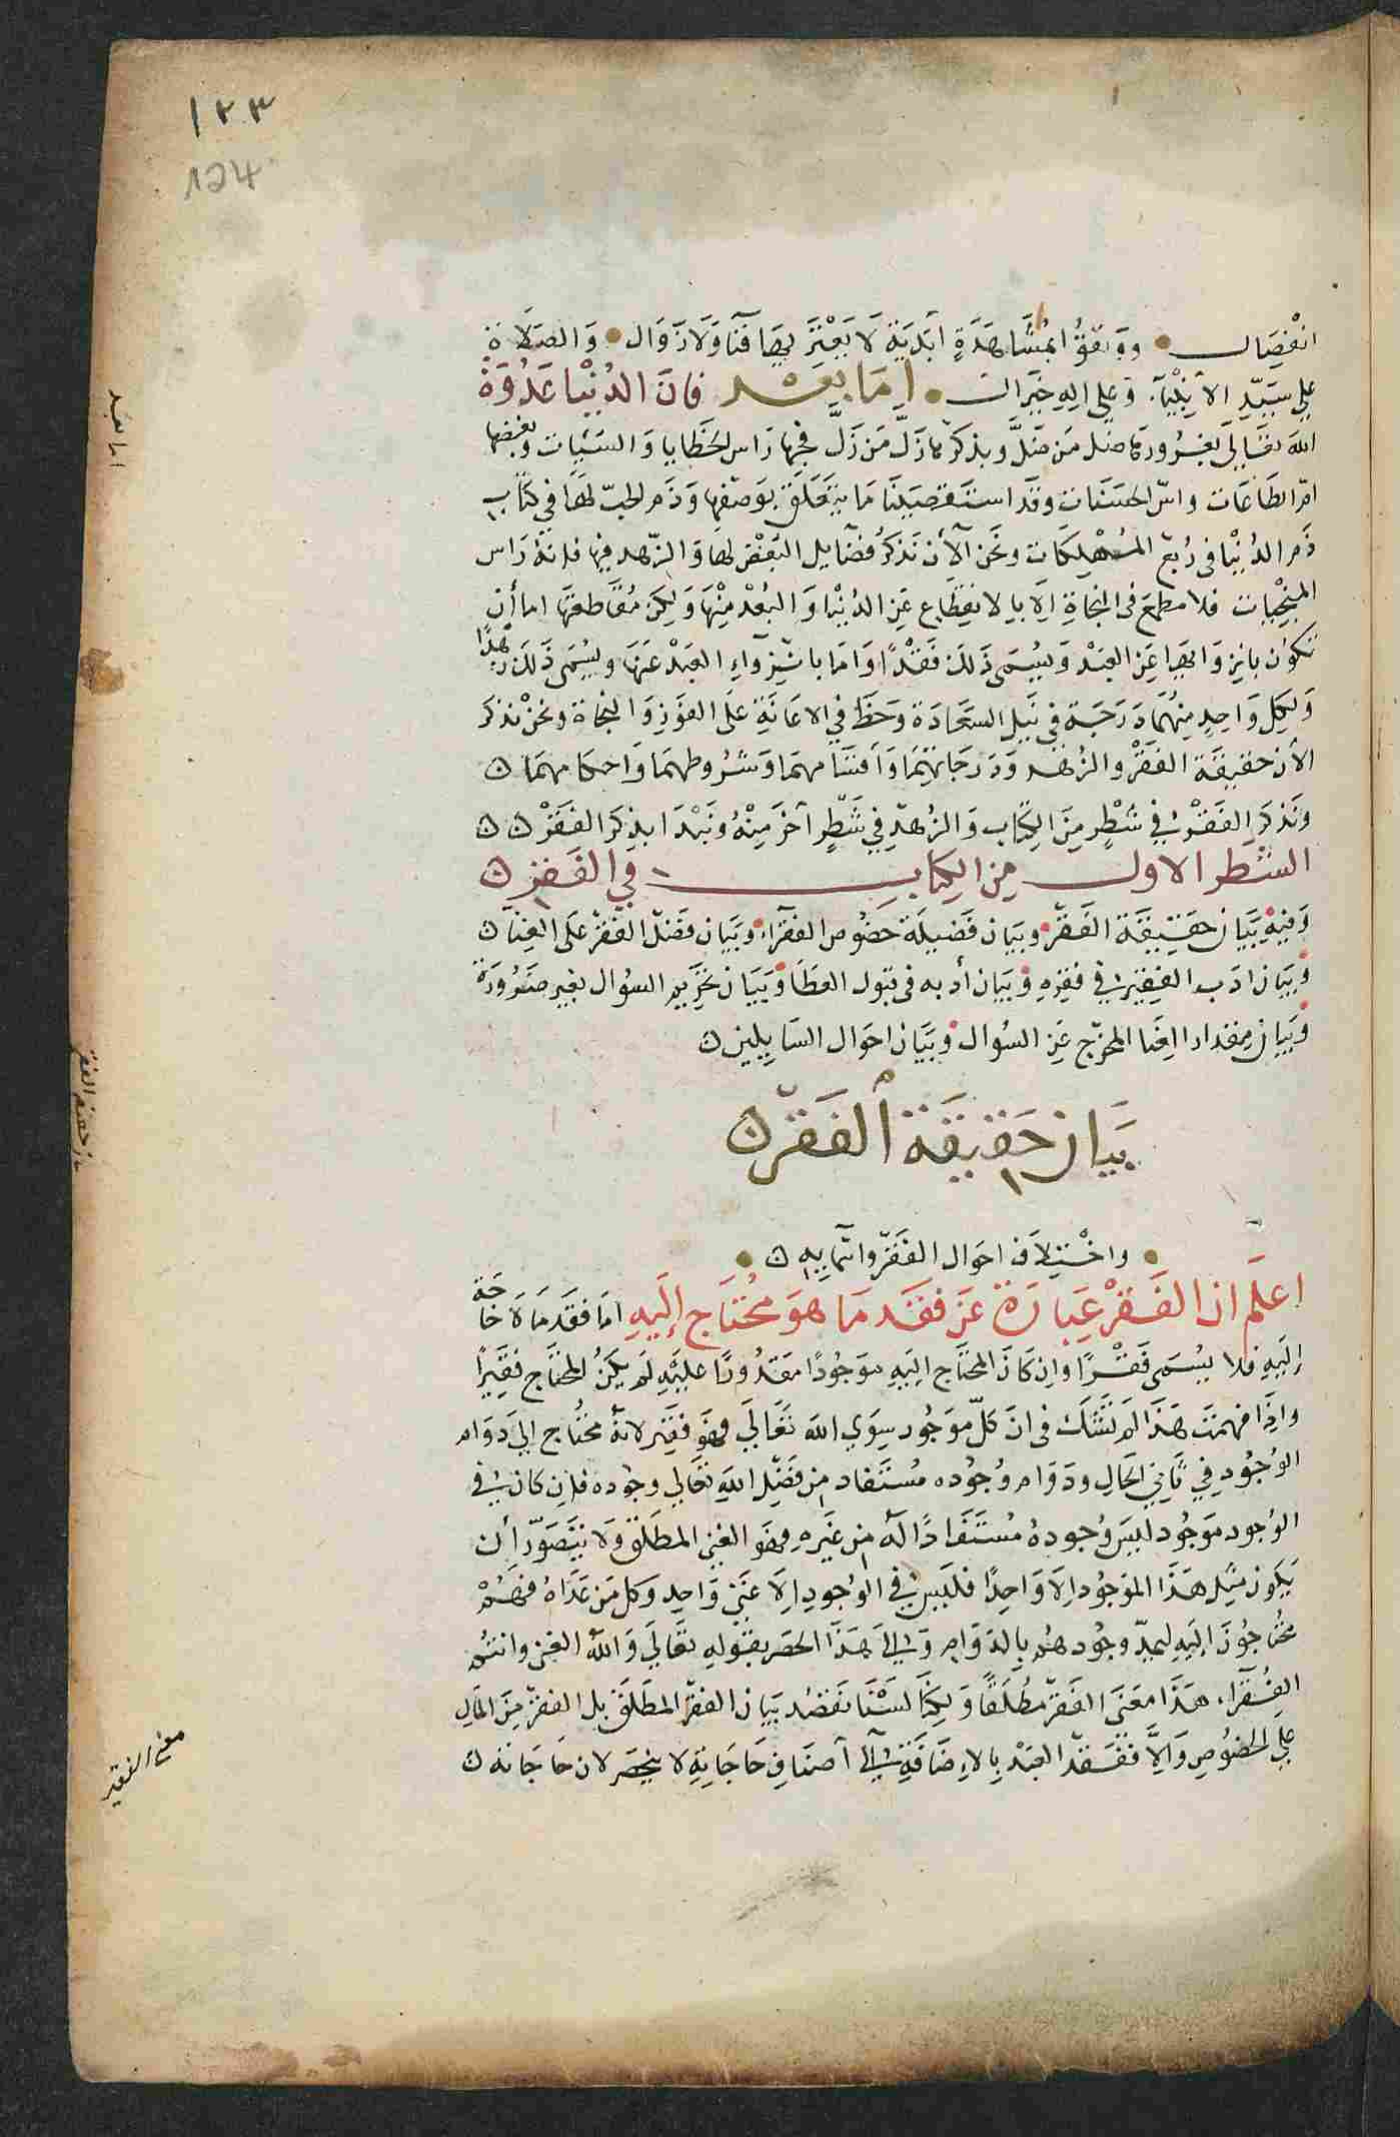 ١٢٣
124
انفصال ووثقوا بمشاهدة ابدية لا يعتريها فنا ولا زوال والصلاة
على سيد الانبيآ وعلى اله خير ال اما بعد فان الدنيا عدوة
الله تعالى بغرورها ضل من ضل وبذكرها زل من زل فحبها راس الخطايا والسيات وبغضها
ام الطاعات واس الحسنات وقد استقصينا ما يتعلق بوصفها وذم الحب لها في كتاب
ذم الدنيا في ربع المهلكات ونحن الآن نذكر فضايل البغض لها والزهد فيها فانه راس
المنجيات فلا مطمع في النجاة الا بالانقطاع عن الدنيا والبعد منها ولكن مقاطعتها اما أن
تكون بانزوايها عن العبد ويسمى ذلك فقرا واما بانزوآء العبد عنها ويسمى ذلك زهدا
ولكل واحد منهما درجة في نيل السعادة وحظ في الاعانة على الفوز والنجاة ونحن نذكر
الآن حقيقة الفقر والزهد ودرجاتهما وأقسامهما وشروطهما واحكامهما ن
ونذكر الفقر في شطر من الكتاب والزهد في شطر آخر منه ونبدا بذكر الفقر ن ن
الشطر الاول من الكتاب في الفقر ن
وفيه بيان حقيقة الفقر وبيان فضيلة خصوص الفقرآء وبيان فضل الفقر على الغنا ن
وبيان ادب الفقير في فقره وبيان أدبه في قبول العطا وبيان تحريم السؤال بغير ضرورة
وبيان مقدار الغنا المحرّم عن السوال وبيان احوال السايلين ن
بيان حقيقة الفقر ن
واختلاف احوال الفقر واسماييه ن
اعلم ان الفقر عبارة عن فقد ما هو محتاج إليه اما فقد ما لا حاجة
إليه فلا يسمى فقرا وان كان المحتاج اليه موجودا مقدورا عليه لم يكن المحتاج فقيرا
واذا فهمت هذا لم تشك في ان كل موجود سوى الله تعالى فهو فقير لانه محتاج الى دوام
الوجود في ثاني الحال ودوام وجوده مستفاد من فضل الله تعالى وجوده فان كان في
الوجود موجود ليس وجوده مستفادا له من غيره فهو الغني المطلق ولا يتصور أن
يكون مثل هذا الموجود الا واحدا فليس في الوجود الا غني واحد وكل من عداه فهم
محتاجون اليه ليمد وجودهم بالدوام والى هذا الحصر بقوله تعالى والله الغني وانتم
الفقرآء هذا معنى الفقر مطلقا ولكنا لسنا نقصد بيان الفقر المطلق بل الفقر من المال
على الخصوص والا ففقد العبد بالاضافة الى اصناف حاجاته لا ينحصر لان حاجاته ن
اما بعد
حقيقة الفقر
معنى الفقير